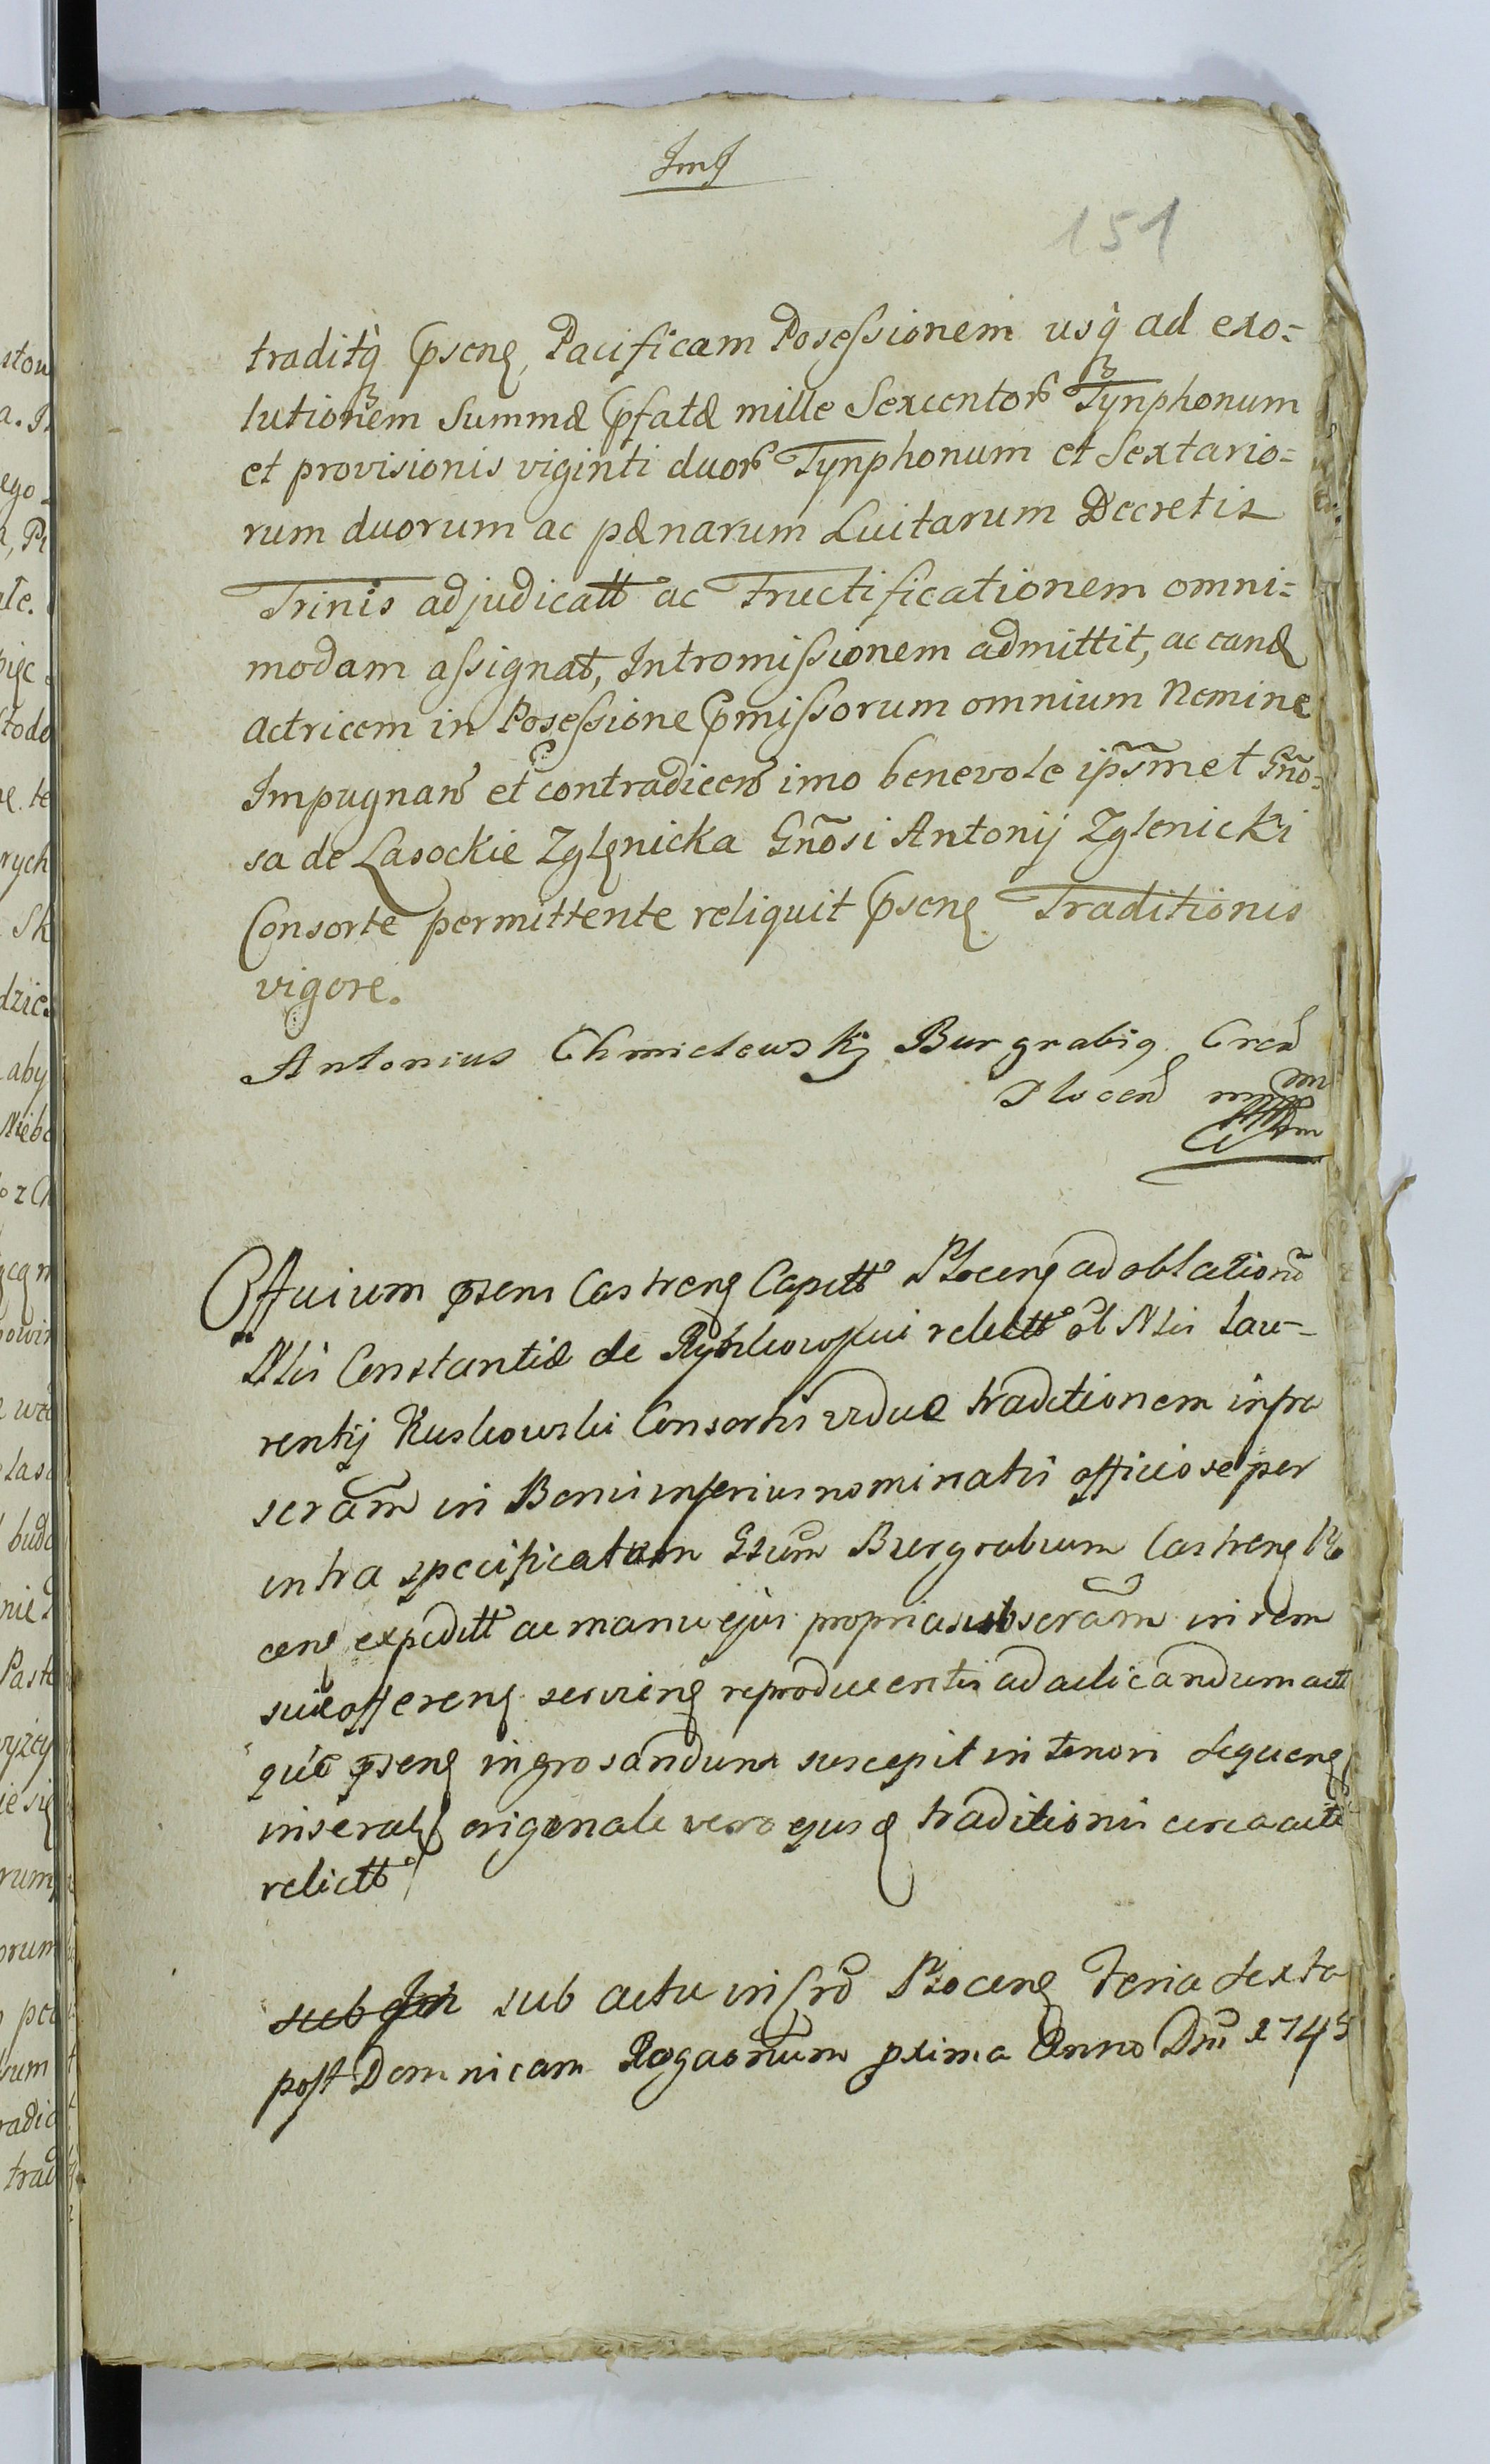 151
traditq̀ Pseng Pacificam Posessionem usq̀ ad exo=
lutionem Summæ Pfatæ mille Sexcentor Tynphonum
et provisionis viginti duor Tynphonum et Sextario=
rum duorum ac pænarum Luitarum Decretis
Trinis adjudicatt ac Fructificationem omni=
modam assignat, Intromissionem admittit, ac eand
actricem in Posessione Pmissorum omnium Nemine
Impugnan et contradicen imo benevole ipsmet Gño=
sa de Lasockie Zglenicka Gñosi Antonij Zglenicki
Consorte permittente reliquit Pseng Traditionis
vigore.
Antonius Chmielewskj Burgrabig Cren
Plocen mm
Officium psens Castreng Capitt Ploceng ad oblation
Nlis Constantiæ de relictt ol Nlis Lau=
rentij Ruskowski Consortis viduæ traditionem infra
scram in Bonis inferius nominatis officiose per
intra specificatum Gsum Burgrabium Castreng Plo
cen expeditt ac manu ejus propria subscram in rem
sui offereng serving reproducentis ad acticandum acti
que pseng ingrosandum suscepit in tenori sequeng
inseralr originale vero ejusd traditionis circa acta
relictt
sub actu in Crò Ploceng Feria sexta
post Dominicam Rogaonum prima Anno Dni 1745